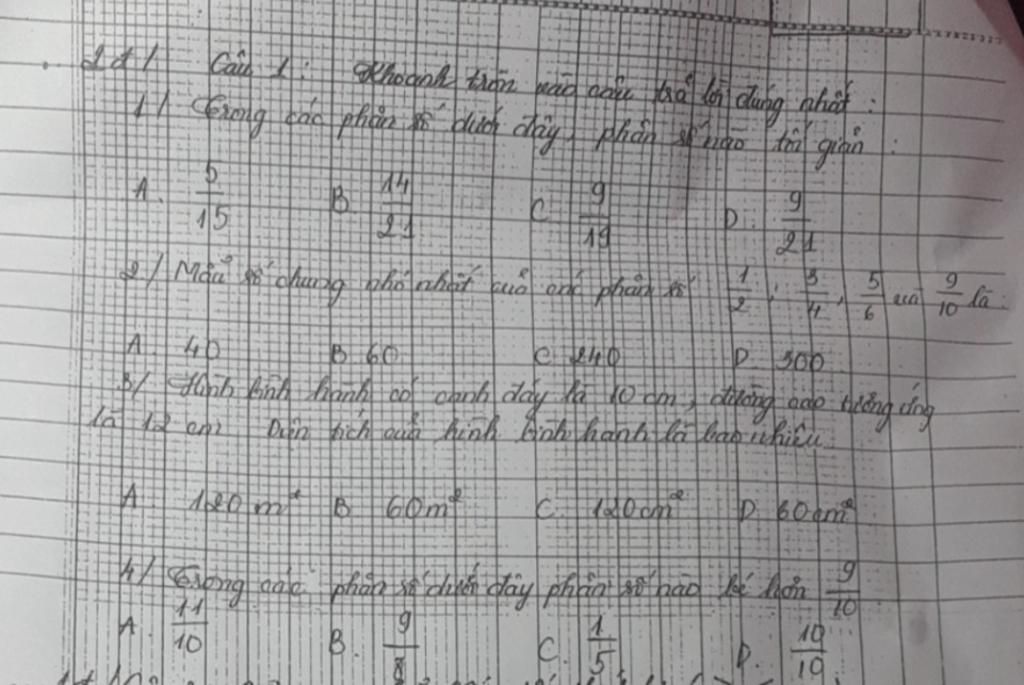 Câu 1: Khoanh tròn vào câu trả lời đúng nhất:
1/ Trong các phân số dưới đây, phân số nào tối giản:
A. 5/15 B. 14/21 C. 9/19 D. 9/21
2/ Mẫu số chung nhỏ nhất của các phân số 1/2; 3/4, 5/6 và 9/10 là:
A. 40 B 60 C 240 D. 300
3/ Hình bình hành có cạnh đáy là 10 cm, đường cao tương ứng
là 12 cm. Diện tích của hình bình hành là bao nhiêu
A 120 m² B 60m² C. 120cm² D. 60cm²
4/ Trong các phân số dưới đây phân số nào bé hơn 9/10
A. 11/10 B. 9/8 C. 1/5 D. 10/10